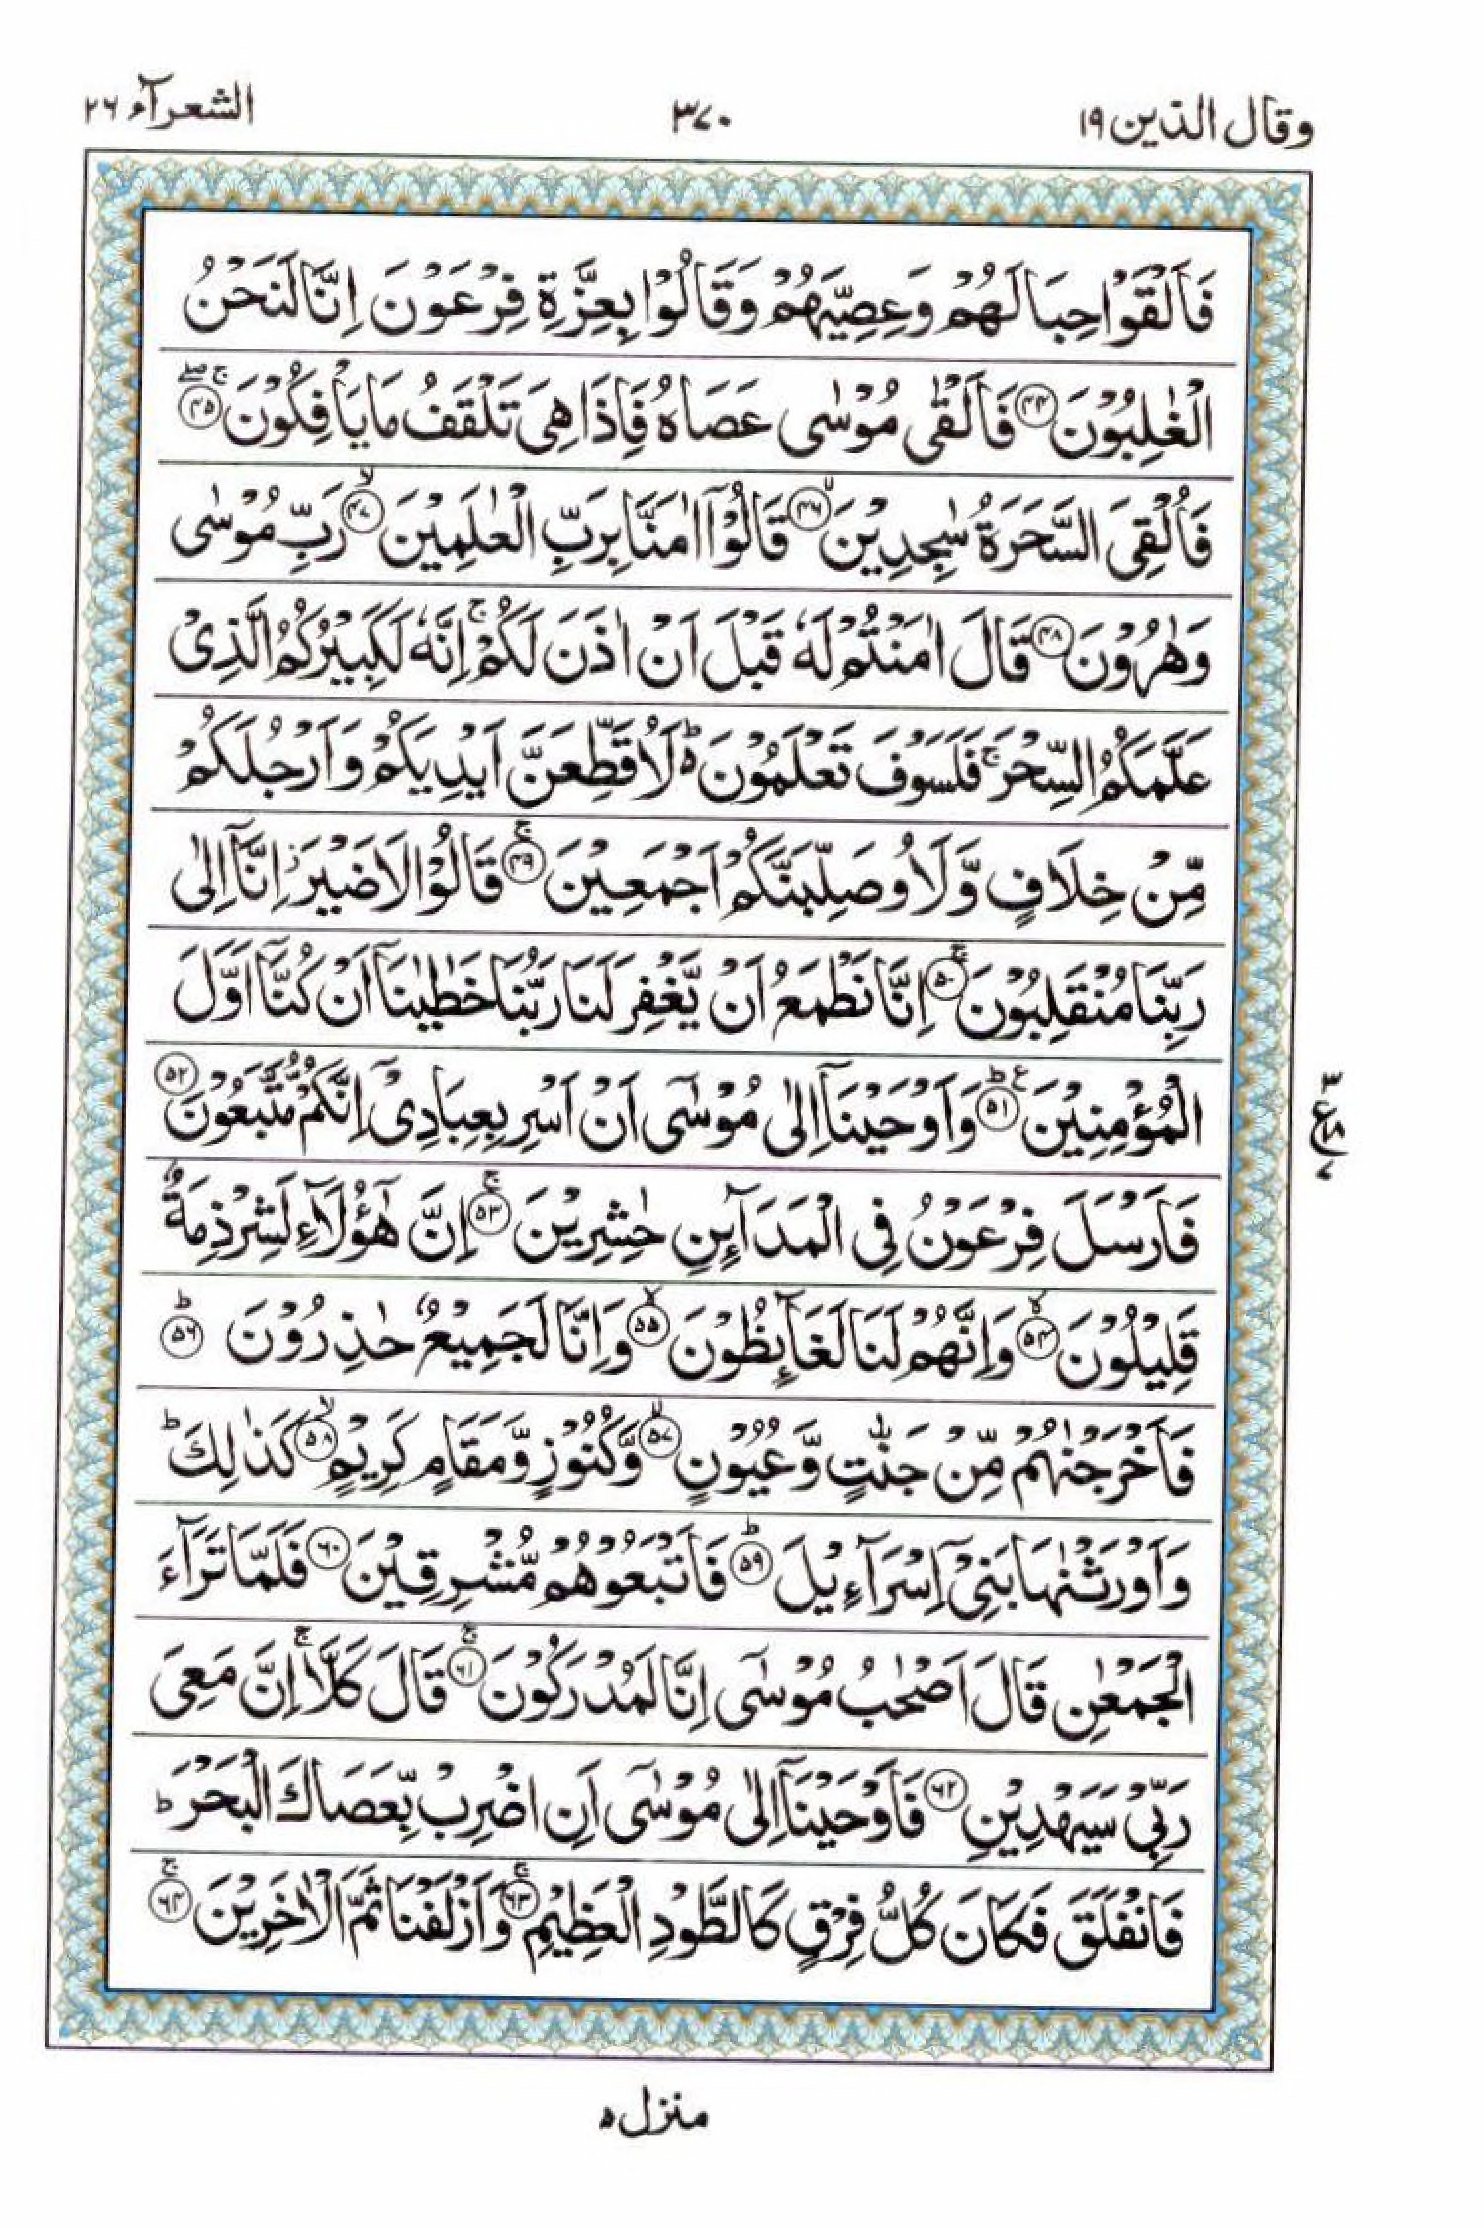 وقال الذين ١٩ ٣٧٠ الشعرآء ٢٦
فَاَلْقَوْا حِبَالَهُمْ وَعِصِيَّهُمْ وَقَالُوْا بِعِزَّةِ فِرْعَوْنَ اِنَّا لَنَحْنُ
الْغٰلِبُوْنَ ﴿۴۴﴾ فَاَلْقٰى مُوْسٰى عَصَاهُ فَاِذَا هِىَ تَلْقَفُ مَا يَاْفِكُوْنَ ﴿۴۵﴾ۚۖ
فَاُلْقِىَ السَّحَرَةُ سٰجِدِيْنَ ﴿۴۶﴾ۙ قَالُوْۤا اٰمَنَّا بِرَبِّ الْعٰلَمِيْنَ ﴿۴۷﴾ۙ رَبِّ مُوْسٰى
وَهٰرُوْنَ ﴿۴۸﴾ قَالَ اٰمَنْتُمْ لَهٗ قَبْلَ اَنْ اٰذَنَ لَكُمْۚ اِنَّهٗ لَكَبِيْرُكُمُ الَّذِىْ
عَلَّمَكُمُ السِّحْرَۚ فَلَسَوْفَ تَعْلَمُوْنَ۬ؕ لَاُقَطِّعَنَّ اَيْدِيَكُمْ وَاَرْجُلَكُمْ
مِّنْ خِلَافٍ وَّلَاُوصَلِّبَنَّكُمْ اَجْمَعِيْنَ ﴿۴۹﴾ۚ قَالُوْا لَا ضَيْرَؗ اِنَّاۤ اِلٰى
رَبِّنَا مُنْقَلِبُوْنَ ﴿۵۰﴾ۚ اِنَّا نَطْمَعُ اَنْ يَّغْفِرَ لَنَا رَبُّنَا خَطٰيٰنَاۤ اَنْ كُنَّاۤ اَوَّلَ
الْمُؤْمِنِيْنَ ﴿۵۱﴾ؕ ع وَاَوْحَيْنَاۤ اِلٰى مُوْسٰٓى اَنْ اَسْرِ بِعِبَادِىْۤ اِنَّكُمْ مُّتَّبَعُوْنَ ﴿۵۲﴾
٣ ع ٧
فَاَرْسَلَ فِرْعَوْنُ فِى الْمَدَآئِنِ حٰشِرِيْنَ ﴿۵۳﴾ۚ اِنَّ هٰٓؤُلَآءِ لَشِرْذِمَةٌ
قَلِيْلُوْنَ ﴿۵۴﴾ۙ وَاِنَّهُمْ لَنَا لَغَآئِظُوْنَ ﴿۵۵﴾ۙ وَاِنَّا لَجَمِيْعٌ حٰذِرُوْنَ ﴿۵۶﴾ؕ
فَاَخْرَجْنٰهُمْ مِّنْ جَنّٰتٍ وَّعُيُوْنٍ ﴿۵۷﴾ۙ وَّكُنُوْزٍ وَّمَقَامٍ كَرِيْمٍ ﴿۵۸﴾ۙ كَذٰلِكَؕ
وَاَوْرَثْنٰهَا بَنِىْۤ اِسْرَآءِيْلَ ﴿۵۹﴾ؕ فَاَتْبَعُوْهُمْ مُّشْرِقِيْنَ ﴿۶۰﴾ فَلَمَّا تَرَآءَ
الْجَمْعٰنِ قَالَ اَصْحٰبُ مُوْسٰٓى اِنَّا لَمُدْرَكُوْنَ ﴿۶۱﴾ۚ قَالَ كَلَّاۚ اِنَّ مَعِىَ
رَبِّىْ سَيَهْدِيْنِ ﴿۶۲﴾ فَاَوْحَيْنَاۤ اِلٰى مُوْسٰٓى اَنِ اضْرِبْ بِّعَصَاكَ الْبَحْرَؕ
فَانْفَلَقَ فَكَانَ كُلُّ فِرْقٍ كَالطَّوْدِ الْعَظِيْمِ ﴿۶۳﴾ۚ وَاَزْلَفْنَا ثَمَّ الْاٰخَرِيْنَ ﴿۶۴﴾ۚ
منزل ٥